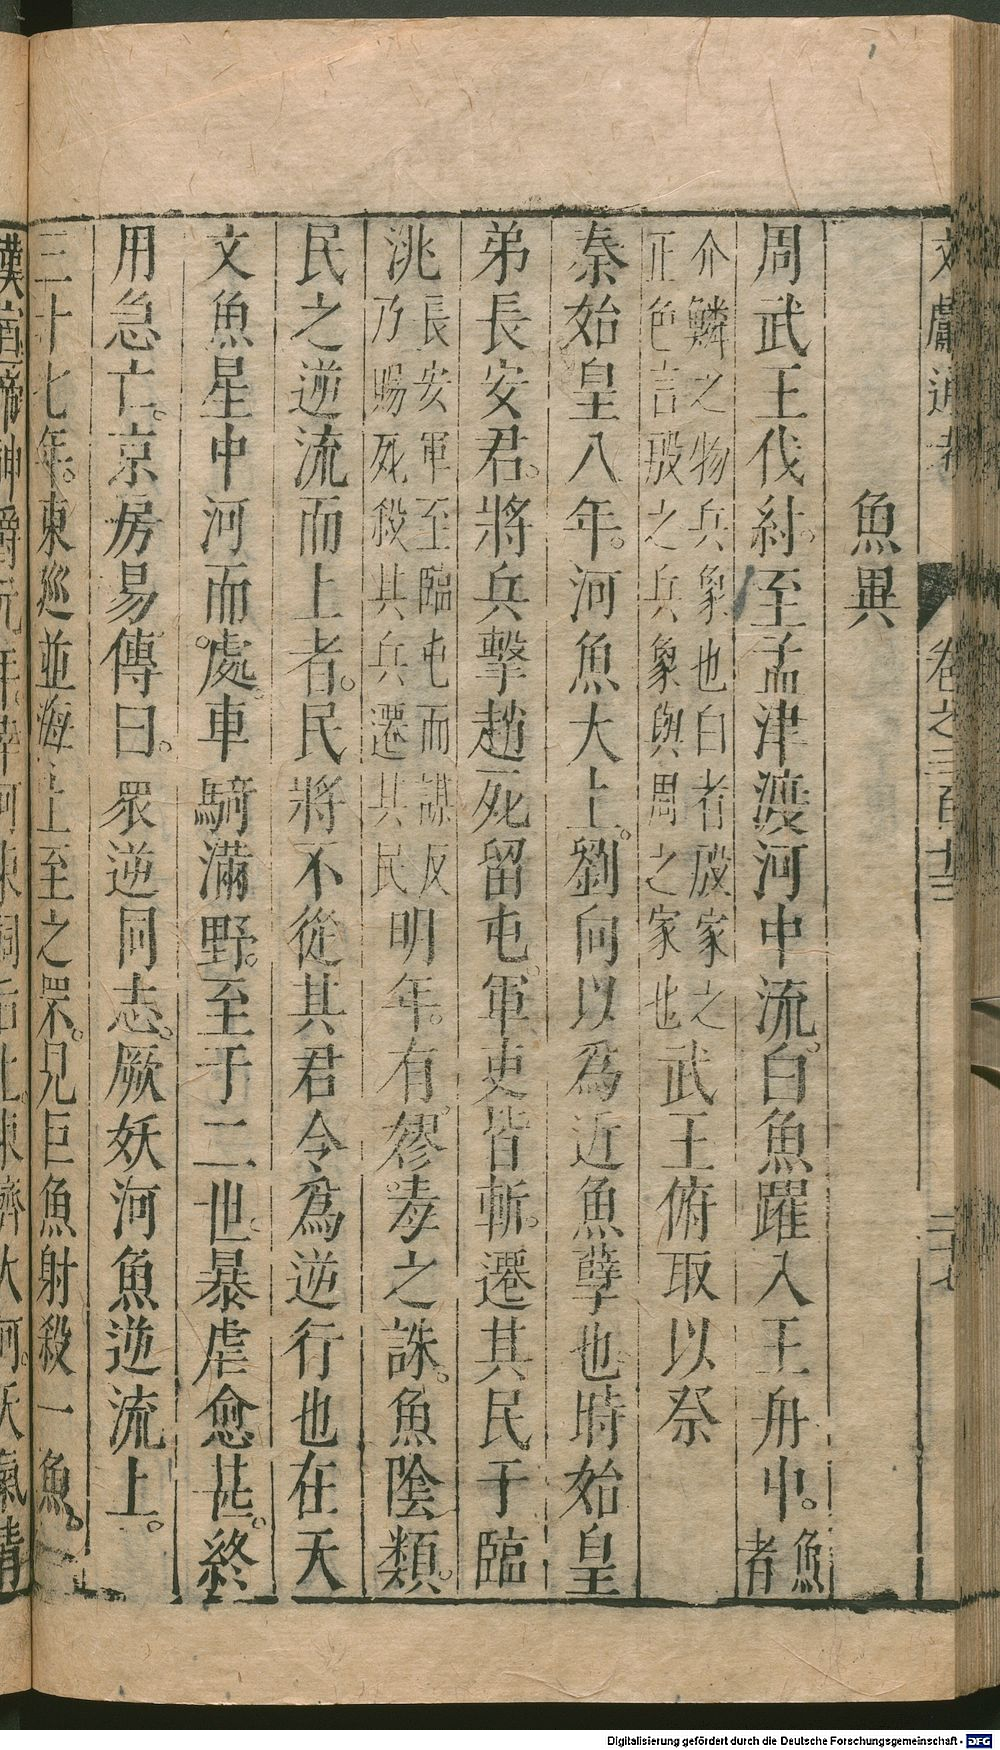 文獻通考 卷之三百十三 二十七
魚異
周武王伐紂。至孟津渡河中流。白魚躍入王舟中。魚者
介鱗之物兵象也白者殷家之
正色言殷之兵象與周之家也武王俯取以祭
秦始皇八年。河魚大上。劉向以爲近魚孽也時始皇
弟長安君。將兵擊趙死留屯。軍吏皆斬。遷其民于臨
洮長安軍至臨屯而謀反
乃賜死殺其兵遷其民明年。有嫪毐之誅。魚陰類。
民之逆流而上者。民將不從其君令爲逆行也在天
文魚星中河而處。車騎滿野。至于二世。暴虐愈甚。終
用急亡。京房易傳曰。眾逆同志。厥妖河魚逆流上。
三十七年。東巡並海上至之罘。見巨魚射殺一魚。
Digitalisierung gefördert durch die Deutsche Forschungsgemeinschaft - DFG